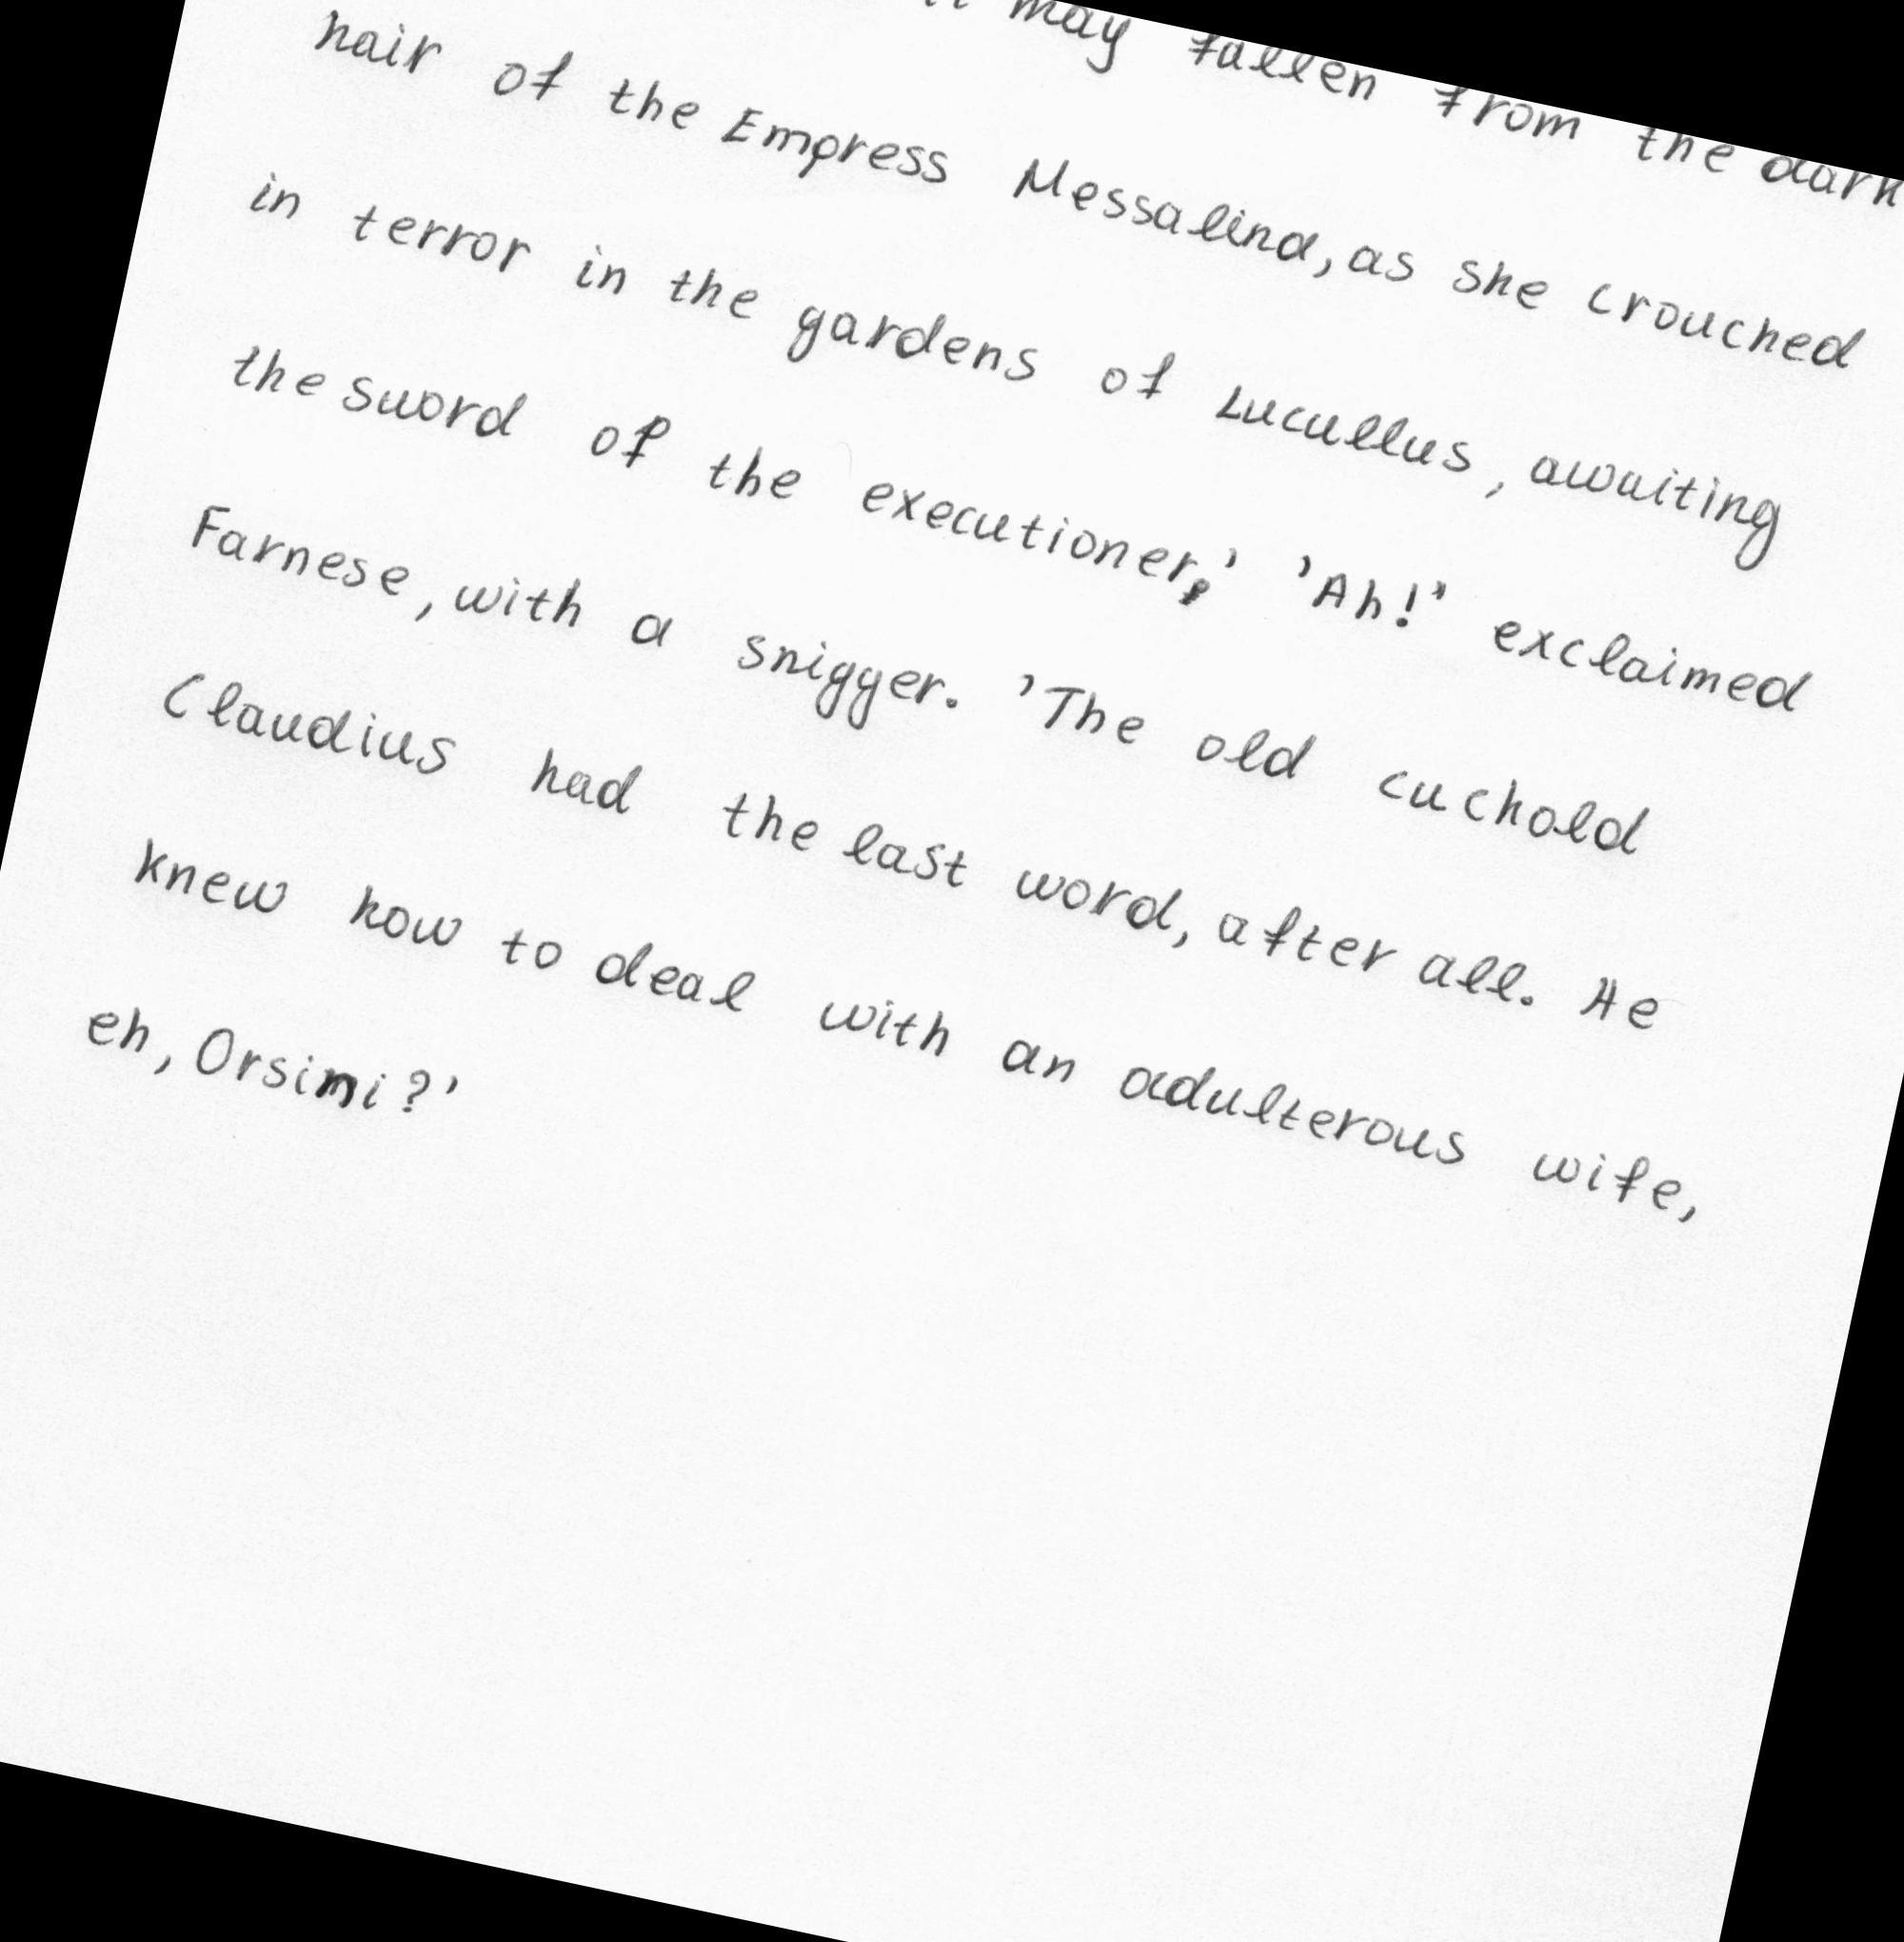 may fallen from the dark
hair of the Empress Messalina, as she crouched
in terror in the gardens of Lucullus, awaiting
the sword of the executioner,' 'Ah!' exclaimed
Farnese, with a snigger. 'The old cuckold
Claudius had the last word, after all. He
knew how to deal with an adulterous wife,
eh, Orsini?'